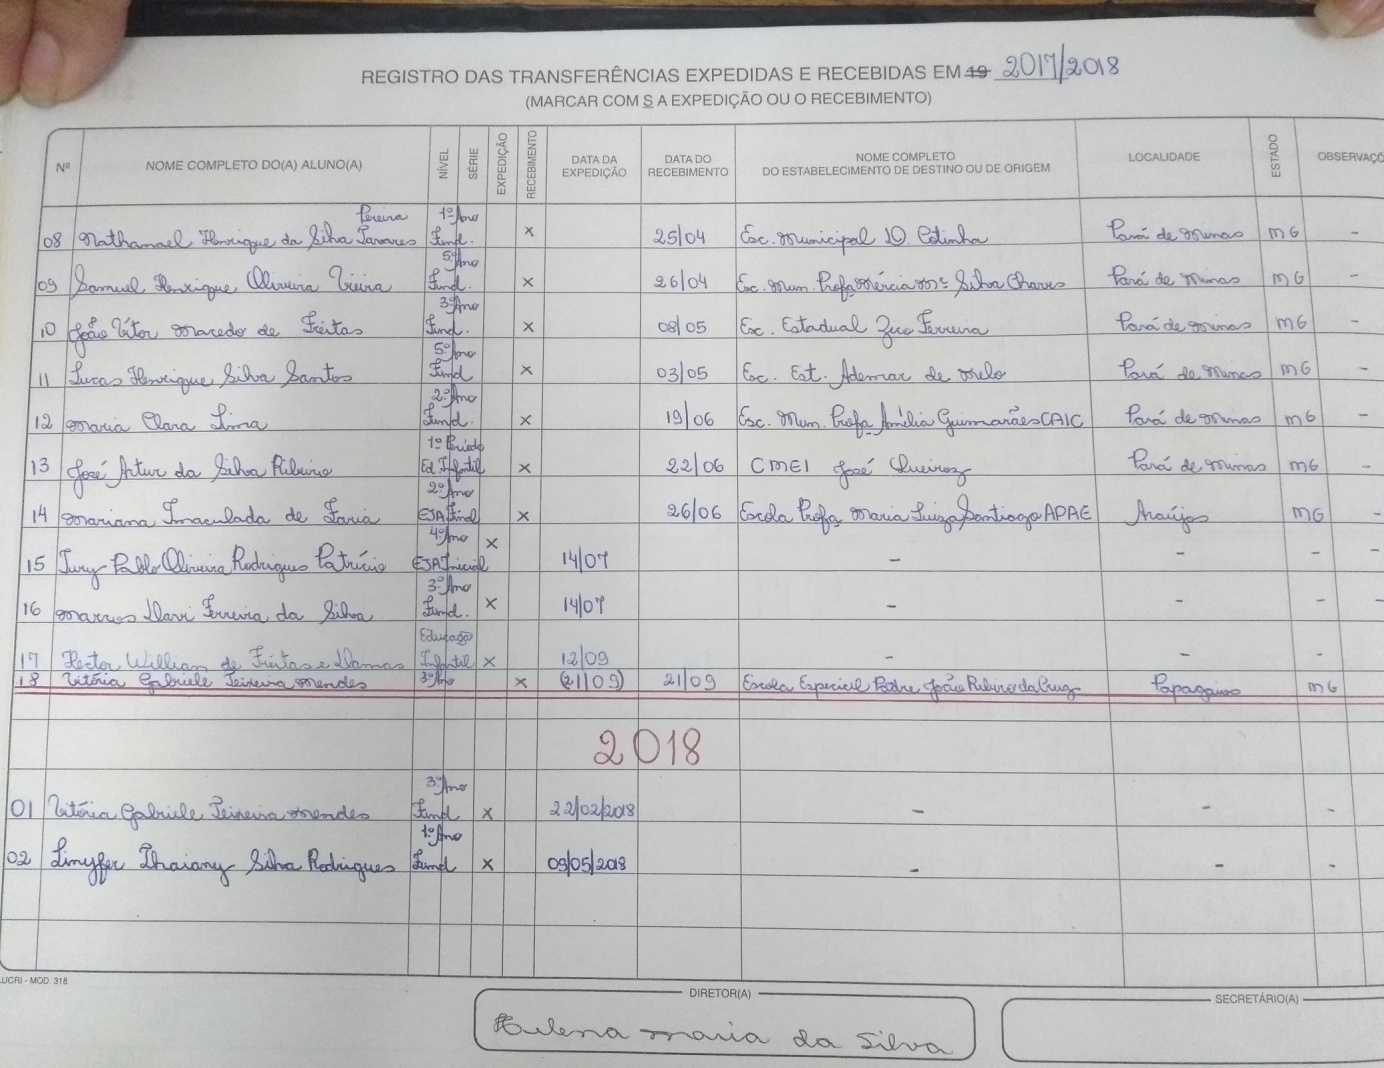 REGISTRO DAS TRANSFERÊNCIAS EXPEDIDAS E RECEBIDAS EM 19 2017/2018
(MARCAR COM S A EXPEDIÇÃO OU O RECEBIMENTO)
Nº NOME COMPLETO DO(A) ALUNO(A) NÍVEL SÉRIE EXPEDIÇÃO RECEBIMENTO DATA DA EXPEDIÇÃO DATA DO RECEBIMENTO NOME COMPLETO DO ESTABELECIMENTO DE DESTINO OU DE ORIGEM LOCALIDADE ESTADO OBSERVAÇÕ
Pereira 1º Ano
08 Nathanael Henrique da Silva Tavares Fund. x 25/04 Esc. Municipal Cotinha Pará de Minas MG -
5º Ano
09 Samuel Henrique Oliveira Vieira Fund. x 26/04 Esc. Mun. Profa Mércia Mª Silva Chaves Pará de Minas MG -
3º Ano
10 João Vítor Macedo de Freitas Fund. x 08/05 Esc. Estadual Zico Ferreira Pará de Minas MG -
5º Ano
11 Lucas Henrique Silva Santos Fund x 03/05 Esc. Est. Ademar de Melo Pará de Minas MG -
2º Ano
12 Maria Clara Lima Fund. x 19/06 Esc. Mun. Profa Amélia Guimarães CAIC Pará de Minas MG -
1º Período
13 José Artur da Silva Ribeiro Ed Infantil x 22/06 CMEI José Queiroz Pará de Minas MG -
2º Ano
14 Mariana Imaculada de Faria EJA Final x 26/06 Escola Profa Maria Luiza Santiago APAE Araújos MG -
4º Ano
15 Iury Pablo Oliveira Rodrigues Patrício EJA Inicial x 14/07 - - - -
3º Ano
16 Marcos Davi Ferreira da Silva Fund. x 14/07 - - - -
Educação
17 Hector William de Freitas e Damas Infantil x 12/09 - - - -
18 Vitória Gabriele Teixeira Mendes 3º Ano x (21/09) 21/09 Escola Especial Padre João Ribeiro da Cruz Papagaios MG -
2018
3º Ano
01 Vitória Gabriele Teixeira Mendes Fund x 22/02/2018 - - -
1º Ano
02 Limyfer Thaiany Silva Rodrigues Fund x 09/05/2018 - - -
LUCRI - MOD. 318
DIRETOR(A)
SECRETÁRIO(A)
Maria da Silva